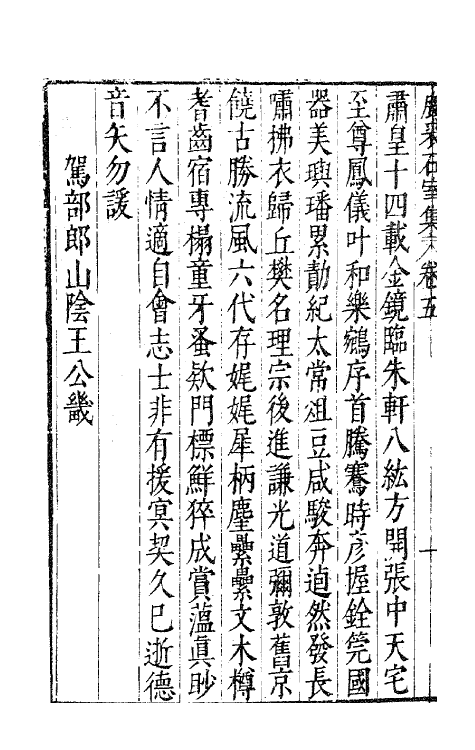 石室集 卷五
十
肅皇十四載金鏡臨朱軒八紘方開張中天宅
至尊鳳儀叶和樂鵷序首騰騫時彥握銓筦國
器美璵璠累勣紀太常俎豆咸駿奔逌然發長
嘯拂衣歸丘樊名理宗後進謙光道彌敦舊京
饒古勝流風六代存娓娓犀柄麈纍纍文木樽
耆齒宿專榻童牙蚤欵門標鮮猝成賞蘊眞眇
不言人情適自會志士非有援冥契久已逝德
音矢勿諼
駕部郎山陰王公畿